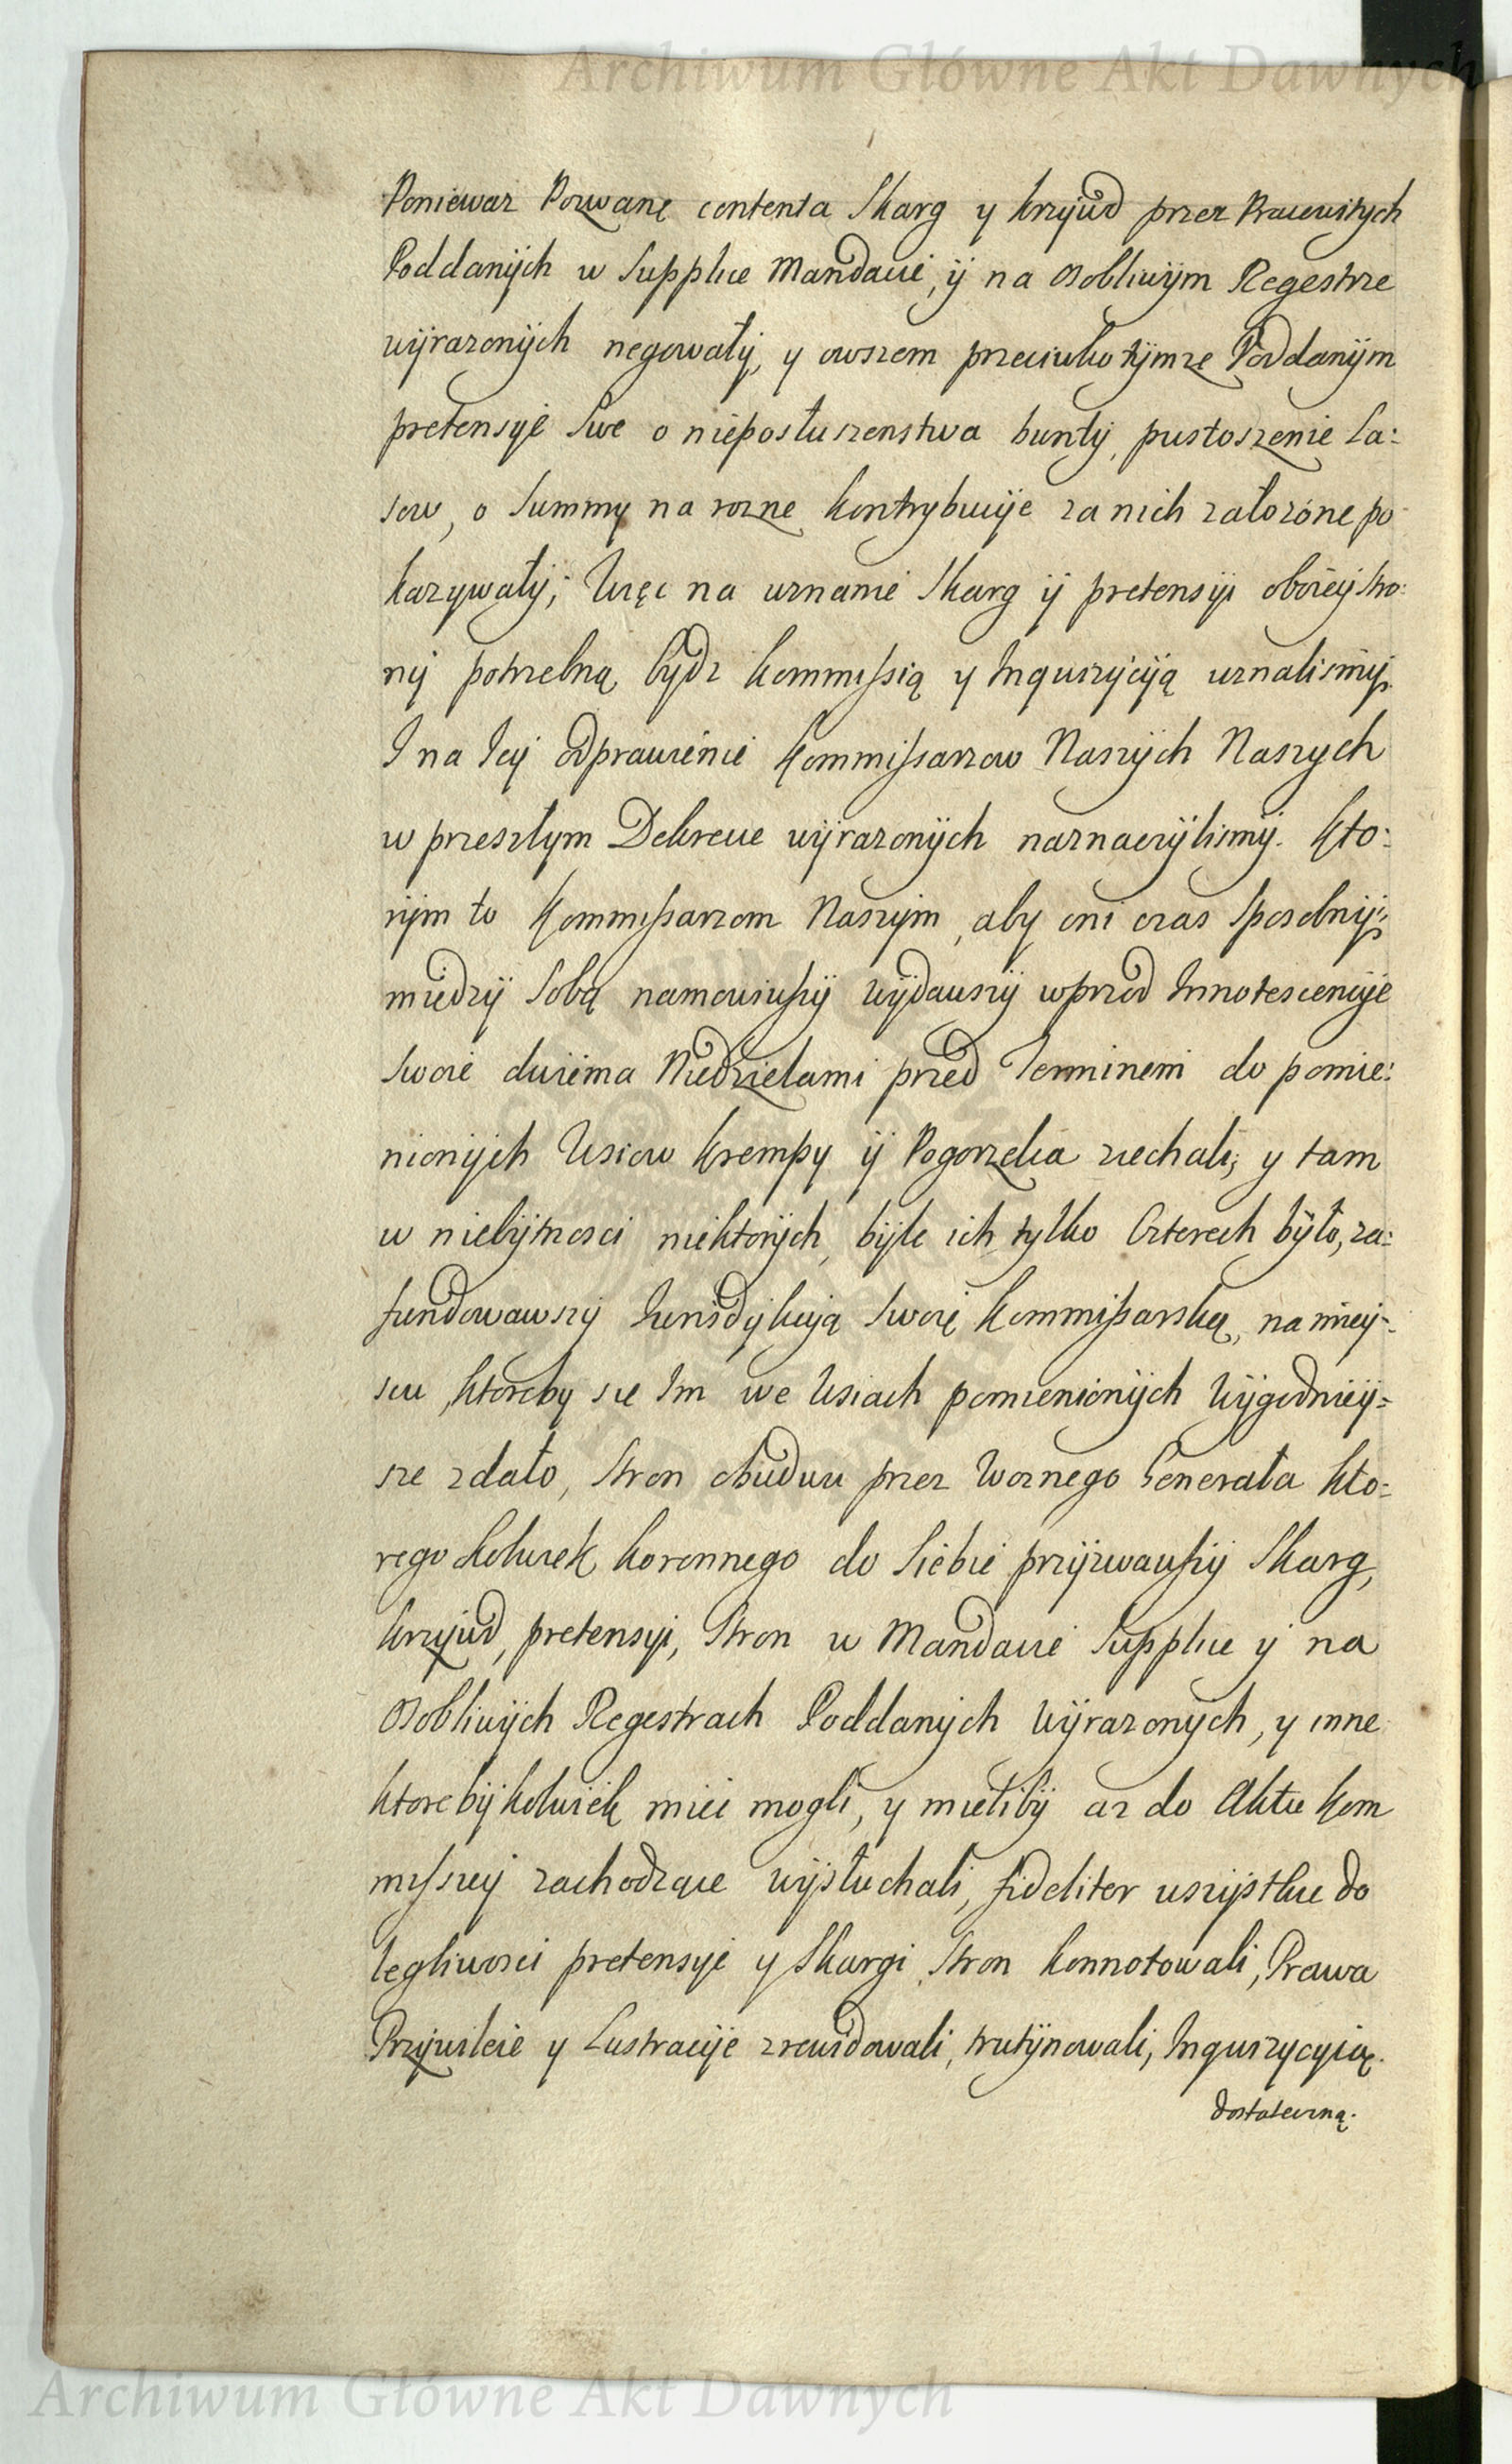 Archiwum Główne Akt Dawnych
Poniewaz Pozwane contenta Skarg y krzywd przez Pracowitych
Poddanych w Supplice Mandacie, y na osobliwym Regestrze
wyrazonych negowały, y owszem przeciwko tymze Poddanym
pretensye swe o nieposłuszenstwa bunty, pustoszenie La:
sow, o Summy na rozne kontrybucye za nich załozone po
kazywały; Więc na uznanie Skarg y pretensyi oboiey stro:
ny potrzebną bydz kommissią y Inquizycyją uznalismy.
I na Iey odprawienie Kommissarzow Naszych Naszych
w przeszłym Dekrecie wyrazonych naznaczylismy. Kto:
rym to Kommissarzom Naszym, aby oni czas sposobny
miedzy Sobą namowiwszy wydawszy wprzod Innotescencye
swoie dwiema Niedzielami przed Terminem do pomie:
nionych Wsiow Krempy y Pogorzelca ziechali; y tam
w niebytnosci niektorych, byle ich tylko Czterech było, za:
fundowawszy Iurisdykcyją Swoię Kommissarską, na miey:
scu, ktoreby sie Im we Wsiach pomienionych Wygodniey:
sze zdało, Stron obudwu przez Woznego Generała kto:
rego kolwiek koronnego do Siebie przyzwawszy Skarg,
krzywd, pretensyi, Stron w Mandacie Supplice y na
Osobliwych Regestrach Poddanych Wyrazonych, y inne
ktoreby kolwiek miec mogli, y mieliby az do Aktu kom
missyey zachodzące wysłuchali, fideliter wszystkie do
legliwosci pretensye y Skargi Stron konnotowali, Prawa
Przywileie y Lustracye zrewidowali, trutynowali, Inquizycyią
dostateczną.
Archiwum Główne Akt Dawnych